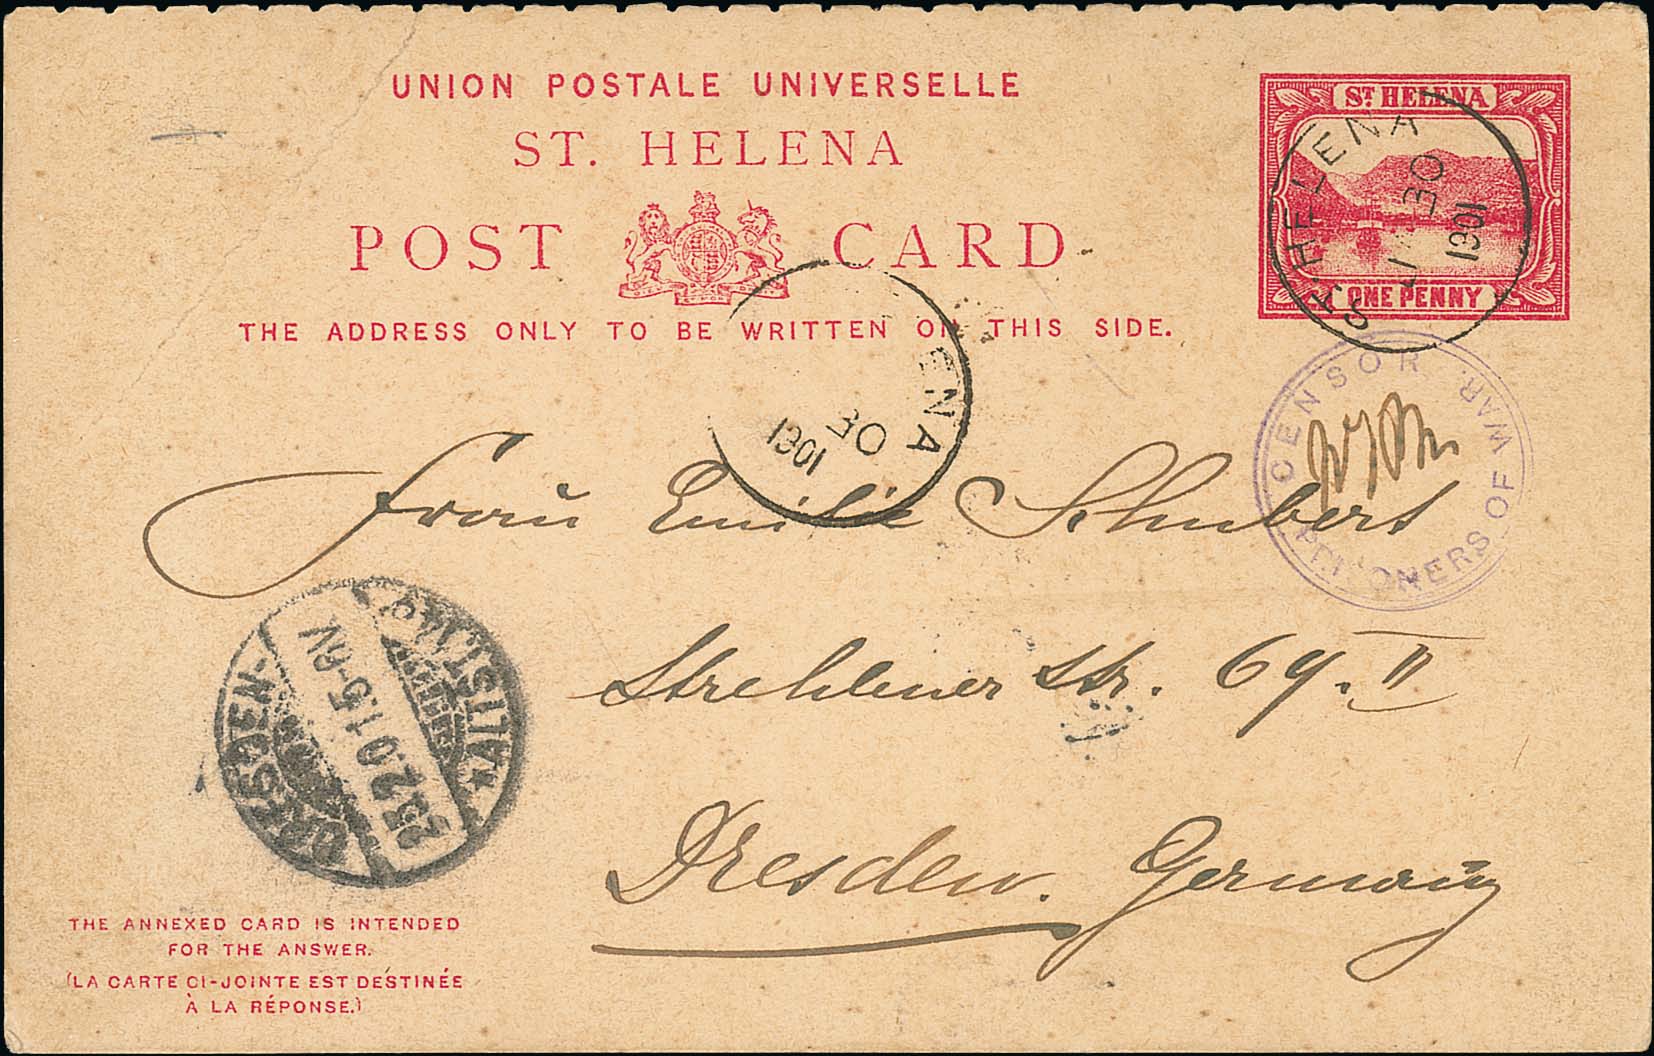 UNION POSTALE UNIVERSELLE
ST. HELENA
POST CARD
THE ADDRESS ONLY TO BE WRITTEN ON THIS SIDE.
ST HELENA
ONE PENNY
ST HELENA
JA 30
1901
ENA
30
1901
CENSOR
PRISONERS OF WAR.
Frau Emilie Schubert
Strehlener Str. 69. II
Dresden. Germany
DRESDEN-ALTST.
23.2.01.5-6N.
THE ANNEXED CARD IS INTENDED
FOR THE ANSWER.
(LA CARTE CI-JOINTE EST DESTINÉE
À LA RÉPONSE.)